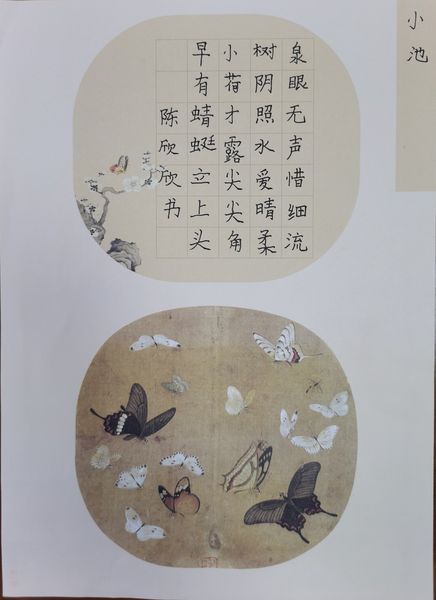 小池
泉眼无声惜细流
树阴照水爱晴柔
小荷才露尖尖角
早有蜻蜓立上头
陈欣欣书